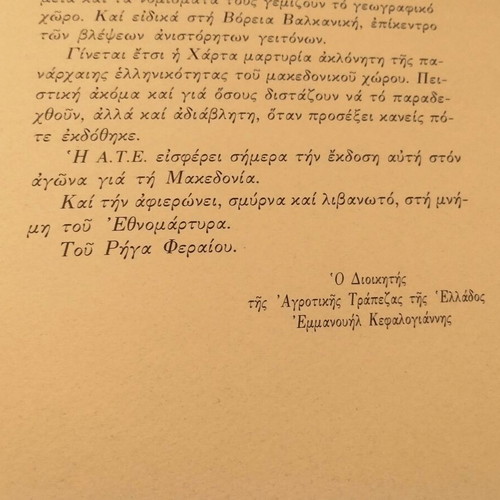 μεῖα καὶ τὰ νομίσματά τους γεμίζουν τό γεωγραφικό
χῶρο. Καί εἰδικά στή Βόρεια Βαλκανική, ἐπίκεντρο
τῶν βλέψεων ἀνιστόρητων γειτόνων.
Γίνεται ἔτσι ἡ Χάρτα μαρτυρία ἀκλόνητη τῆς πα-
νάρχαιης ἑλληνικότητας τοῦ μακεδονικοῦ χώρου. Πει-
στική ἀκόμα καί γιά ὅσους διστάζουν νά τό παραδε-
χθοῦν, ἀλλά καί ἀδιάβλητη, ὅταν προσέξει κανείς πό-
τε ἐκδόθηκε.
Ἡ Α.Τ.Ε. εἰσφέρει σήμερα τήν ἔκδοση αὐτή στόν
ἀγῶνα γιά τή Μακεδονία.
Καί τήν ἀφιερώνει, σμύρνα καί λιβανωτό, στή μνή-
μη τοῦ Ἐθνομάρτυρα.
Τοῦ Ρήγα Φεραίου.
Ὁ Διοικητής
τῆς Ἀγροτικῆς Τράπεζας τῆς Ἑλλάδος
Ἐμμανουήλ Κεφαλογιάννης